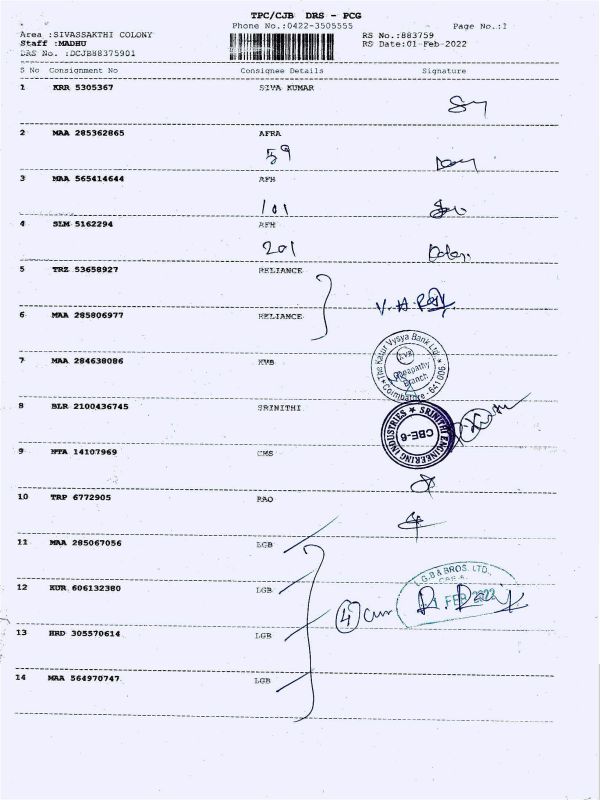 TPC/CJB DRS - PCG
Phone No.:0422-3505555 Page No.:1
Area :SIVASSAKTHI COLONY RS No.:883759
Staff :MADHU RS Date:01-Feb-2022
DRS No. :DCJB88375901
S No Consignment No Consignee Details Signature
1 KRR 5305367 SIVA KUMAR
2 MAA 285362865 AFRA
59
3 MAA 565414644 AFH
101
4 SLM 5162294 AFH
201
5 TRZ 53658927 RELIANCE
6 MAA 285806977 RELIANCE
The Karur Vysya Bank Ltd.
KVB
Branch
Coimbatore - 641 006
7 MAA 284638086 KVB
8 BLR 2100436745 SRINITHI
SRINITHI ENGINEERING INDUSTRIES
CBE-6
9 NTA 14107969 CMS
10 TRP 6772905 RAO
11 MAA 285067056 LGB
L.G.B & BROS. LTD.,
12 KUR 606132380 LGB
4
FEB 2022
13 HRD 305570614 LGB
14 MAA 564970747 LGB